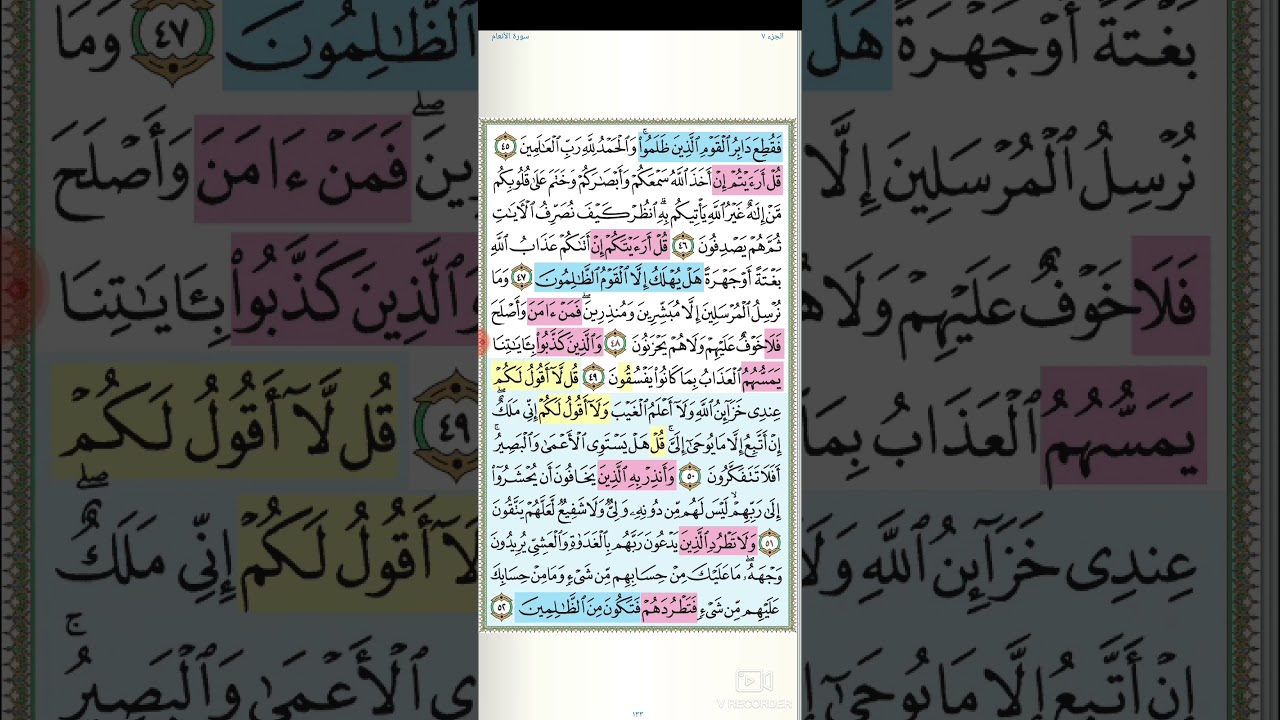 الجزء ٧
سورة الأنعام
فَقُطِعَ دَابِرُ ٱلْقَوْمِ ٱلَّذِينَ ظَلَمُوا۟ ۚ وَٱلْحَمْدُ لِلَّهِ رَبِّ ٱلْعَـٰلَمِينَ ٤٥
قُلْ أَرَءَيْتُمْ إِنْ أَخَذَ ٱللَّهُ سَمْعَكُمْ وَأَبْصَـٰرَكُمْ وَخَتَمَ عَلَىٰ قُلُوبِكُم
مَّنْ إِلَـٰهٌ غَيْرُ ٱللَّهِ يَأْتِيكُم بِهِ ۗ ٱنظُرْ كَيْفَ نُصَرِّفُ ٱلْـَٔايَـٰتِ
ثُمَّ هُمْ يَصْدِفُونَ ٤٦ قُلْ أَرَءَيْتَكُمْ إِنْ أَتَىٰكُمْ عَذَابُ ٱللَّهِ
بَغْتَةً أَوْ جَهْرَةً هَلْ يُهْلَكُ إِلَّا ٱلْقَوْمُ ٱلظَّـٰلِمُونَ ٤٧ وَمَا
نُرْسِلُ ٱلْمُرْسَلِينَ إِلَّا مُبَشِّرِينَ وَمُنذِرِينَ ۖ فَمَنْ ءَامَنَ وَأَصْلَحَ
فَلَا خَوْفٌ عَلَيْهِمْ وَلَا هُمْ يَحْزَنُونَ ٤٨ وَٱلَّذِينَ كَذَّبُوا۟ بِـَٔايَـٰتِنَا
يَمَسُّهُمُ ٱلْعَذَابُ بِمَا كَانُوا۟ يَفْسُقُونَ ٤٩ قُل لَّآ أَقُولُ لَكُمْ
عِندِى خَزَآئِنُ ٱللَّهِ وَلَآ أَعْلَمُ ٱلْغَيْبَ وَلَآ أَقُولُ لَكُمْ إِنِّى مَلَكٌ ۖ
إِنْ أَتَّبِعُ إِلَّا مَا يُوحَىٰٓ إِلَىَّ ۚ قُلْ هَلْ يَسْتَوِى ٱلْأَعْمَىٰ وَٱلْبَصِيرُ ۚ
أَفَلَا تَتَفَكَّرُونَ ٥٠ وَأَنذِرْ بِهِ ٱلَّذِينَ يَخَافُونَ أَن يُحْشَرُوٓا۟
إِلَىٰ رَبِّهِمْ ۙ لَيْسَ لَهُم مِّن دُونِهِۦ وَلِىٌّ وَلَا شَفِيعٌ لَّعَلَّهُمْ يَتَّقُونَ
٥١ وَلَا تَطْرُدِ ٱلَّذِينَ يَدْعُونَ رَبَّهُم بِٱلْغَدَوٰةِ وَٱلْعَشِىِّ يُرِيدُونَ
وَجْهَهُۥ ۖ مَا عَلَيْكَ مِنْ حِسَابِهِم مِّن شَىْءٍ وَمَا مِنْ حِسَابِكَ
عَلَيْهِم مِّن شَىْءٍ فَتَطْرُدَهُمْ فَتَكُونَ مِنَ ٱلظَّـٰلِمِينَ ٥٢
V RECORDER
١٣٣